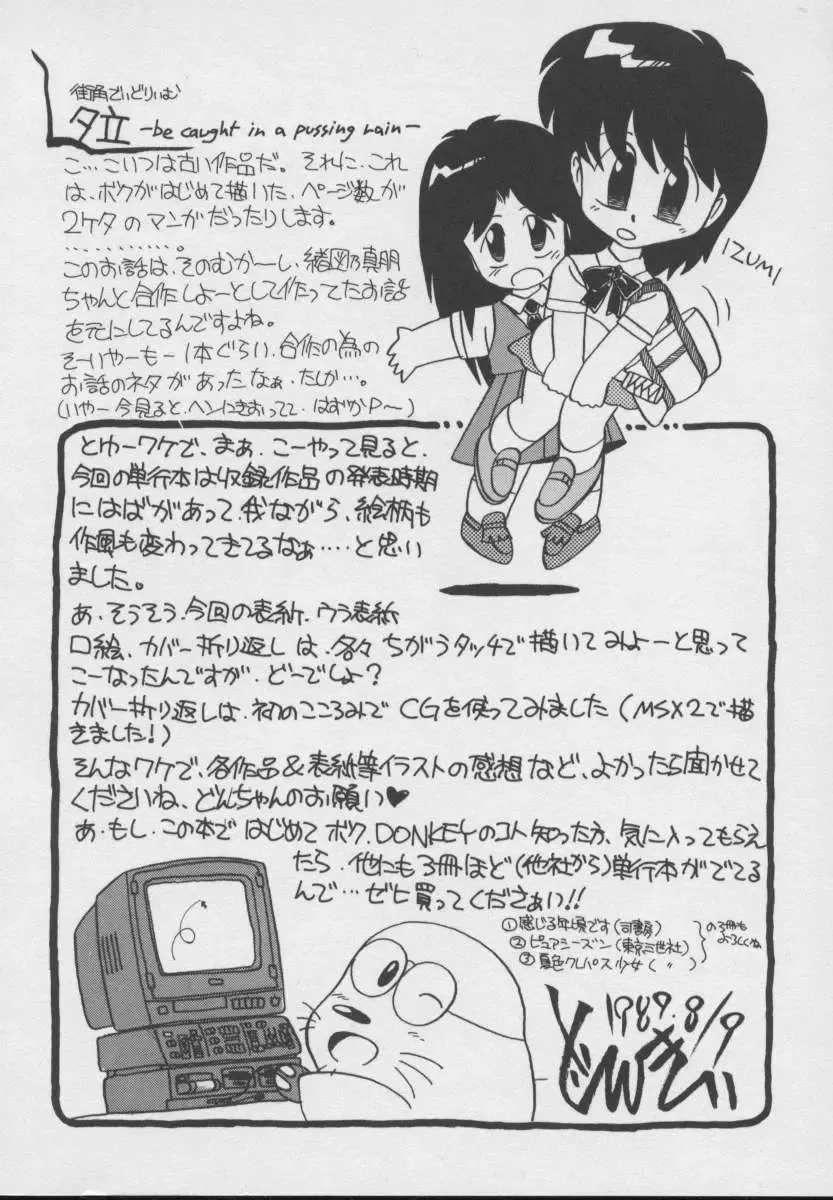 街角でいどりぃむ
夕立 -be caught in a pussing rain-
こ…こいつは古い作品だ。それに、これ
は、ボクがはじめて描いた、ページ数が
2ケタのマンガだったりします。
…………。
このお話は、そのむかーし、緒図乃真朋
ちゃんと合作しよーとして作ってたお話
を元にしてるんですよね。
そーいやーもー1本ぐらい、合作の為の
お話のネタがあったなぁ、たしか…。
(いやー今見ると、ヘンにきおってて、はずかP〜)
IZUMI
とゆーワケで、まぁ、こーやって見ると、
今回の単行本は収録作品の発表時期
にはばがあって、我ながら、絵柄も
作風も変わってきてるなぁ……と思い
ました。
あ、そうそう、今回の表紙、ウラ表紙
口絵、カバー折り返しは、各々ちがうタッチで描いてみよーと思って
こーなったんですが、どーでしょ?
カバー折り返しは、初のこころみでCGを使ってみました(MSX2で描
きました!)
そんなワケで、各作品&表紙等イラストの感想など、よかったら聞かせて
くださいね、どんちゃんのお願い♥
あ、もし、この本ではじめてボク、DONKEYのコト知った方、気に入ってもらえ
たら、他にも3冊ほど(他社から)単行本がでてる
んで…ぜヒ買ってくださぁい!!
①感じる年頃です(司書房)
②ピュアシーズン(東京三世社)
③夏色クレパス少女(〃)
の3冊も
よろしくね
1989.8/9
どんきい